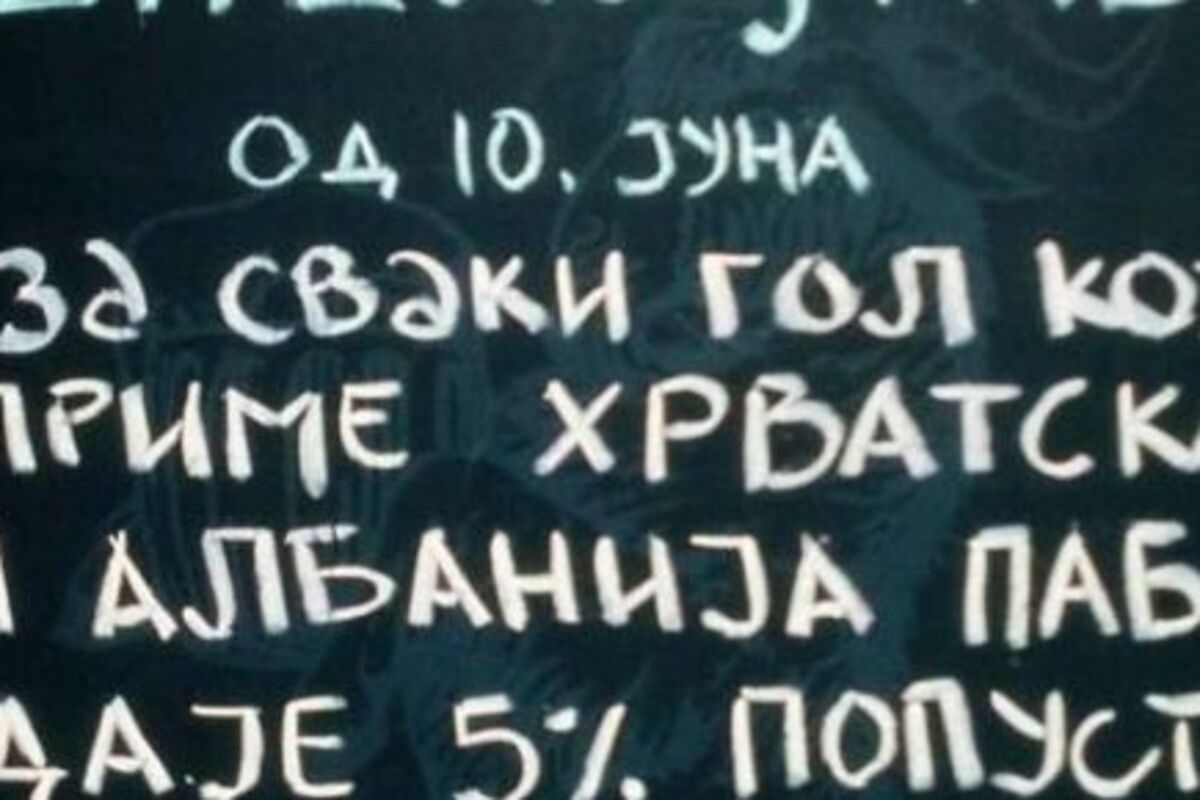 ОД 10. ЈУНА
За СВаКИ ГОЛ
ПРИМЕ ХРВАТСКА
АЛБАНИЈА ПАБ
ДАЈЕ 5% ПОПУСТ